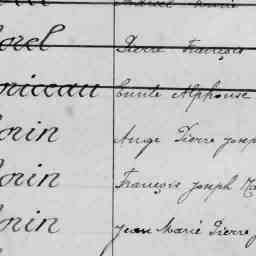 orel Pierre François
oriceau Alphonse
orin Ange Pierre Josep
orin François Joseph Ma
orin Jean Marie Pierre